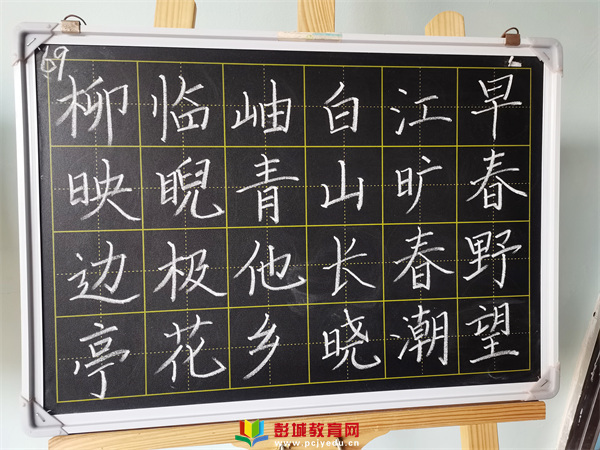 69
早春野望
江旷春潮
白山长晓
岫青他乡
临睨极花
柳映边亭
彭城教育网
www.pcjyedu.cn